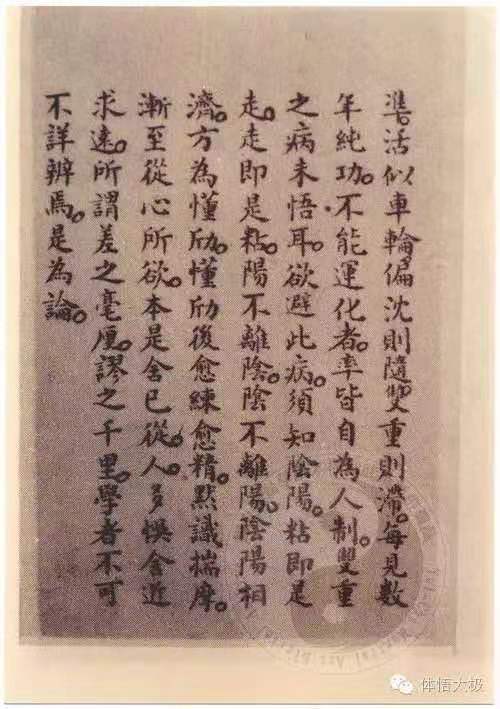 準。活似車輪偏沈則隨。雙重則滯。每見數
年純功。不能運化者。率皆自為人制。雙重
之病未悟耳。欲避此病。須知陰陽。粘即是
走。走即是粘。陽不離陰。陰不離陽。陰陽相
濟。方為懂劤。懂劤後愈練愈精。默識揣摩。
漸至從心所欲。本是舍已從人。多悞舍近
求遠。所謂差之毫厘。謬之千里。學者不可
不詳辨焉。是為論。
体悟太极